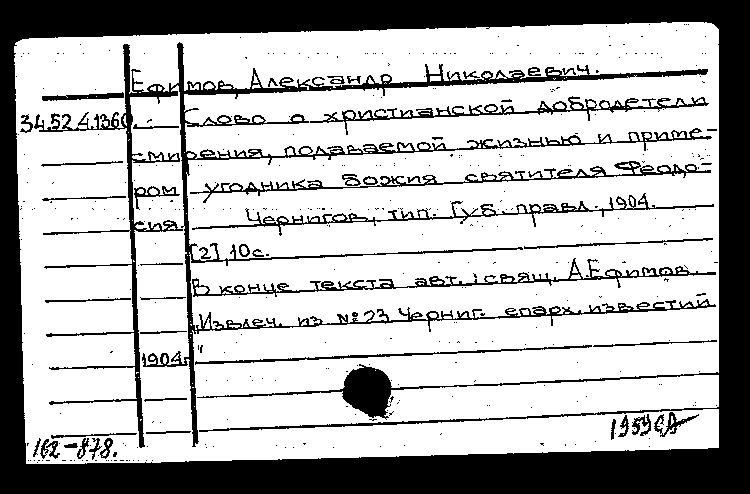 Ефимов, Александр Николаевич.
34.52.4.1360. Слово о христианской добродетели
смирения, подаваемой жизнью и приме-
ром угодника божия святителя Феодо-
сия. Чернигов, тип. Губ. правл., 1904.
[2], 10 с.
В конце текста авт.: свящ. А.Ефимов.
"Извлеч. из №23 Черниг. епарх. известий
1904г."
162-878.